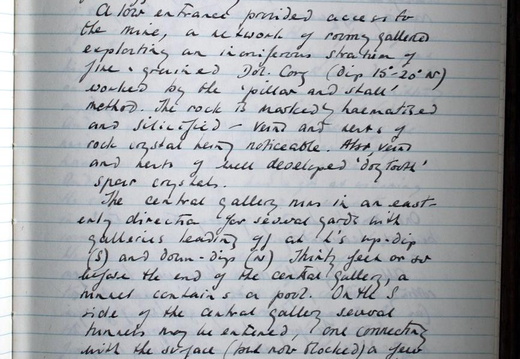 A low entrance provided access to
the mine, a network of roomy galleries
exploiting an ironiferous stratum of
fine-grained Dol. Cong (Dip 15°-20° N)
worked by the 'pillar and stall'
method. The rock is markedly haematised
and silicified – veins and nests of
rock crystal being noticeable. Also, veins
and nests of well developed 'dogtooth'
spar crystals.
The central gallery runs in an east-
erly direction for several yards with
galleries leading off at L's up-dip
(S) and down-dip (N) Thirty feet or so
before the end of the central gallery, a
tunnel contains a pool. On the S
side of the central gallery several
tunnels may be entered, one connecting
with the surface (but now blocked) a few